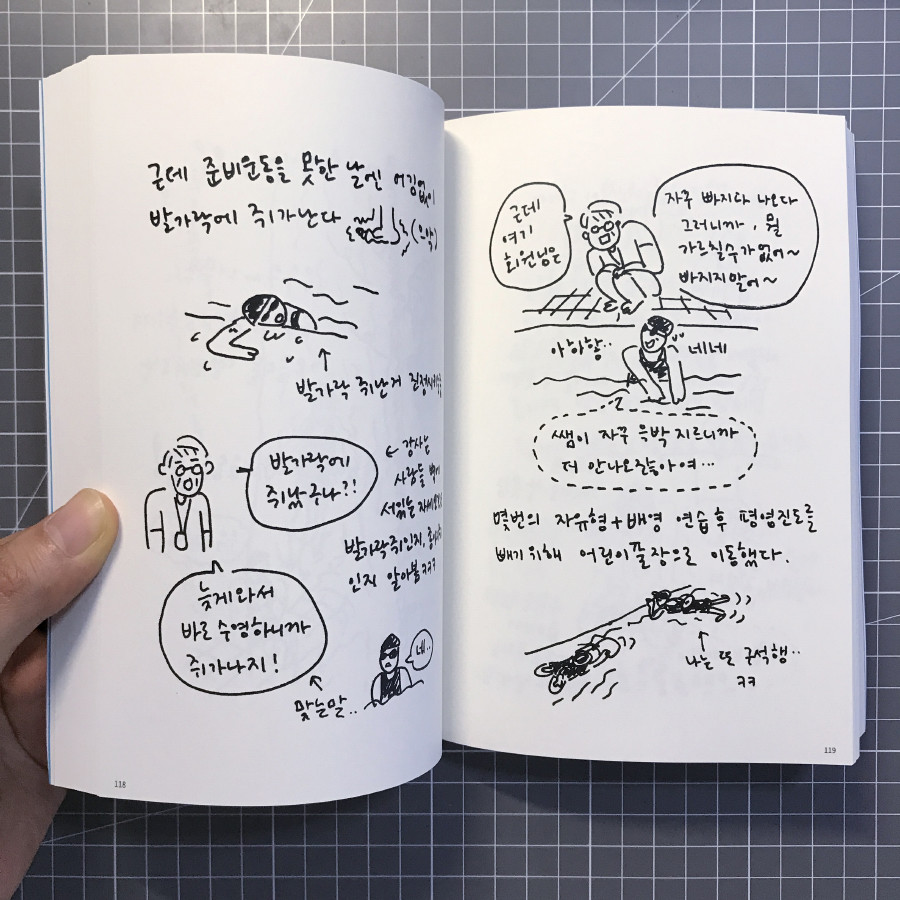 근데 준비운동을 못한 날엔 어김없이
발가락에 쥐가난다 (으악)
발가락 쥐난거
발가락에
쥐났구나?!
← 강사님
사람들
서있는 자세
발가락쥐인지,
인지 알아봄ㅋㅋㅋ
늦게와서
바로 수영하니까
쥐가나지!
맞는말..
네..
118
근데
여기
회원님은
자꾸 빠지다 나오다
그러니까, 뭘
가르칠수가없어~
빠지지말어~
아하항..
네네
쌤이 자꾸 윽박지르니까
더 안나오잖아여...
몇번의 자유형+배영 연습후 평영진도를
빼기위해 어린이풀장으로 이동했다.
나는 또 구석행..
ㅋㅋ
119